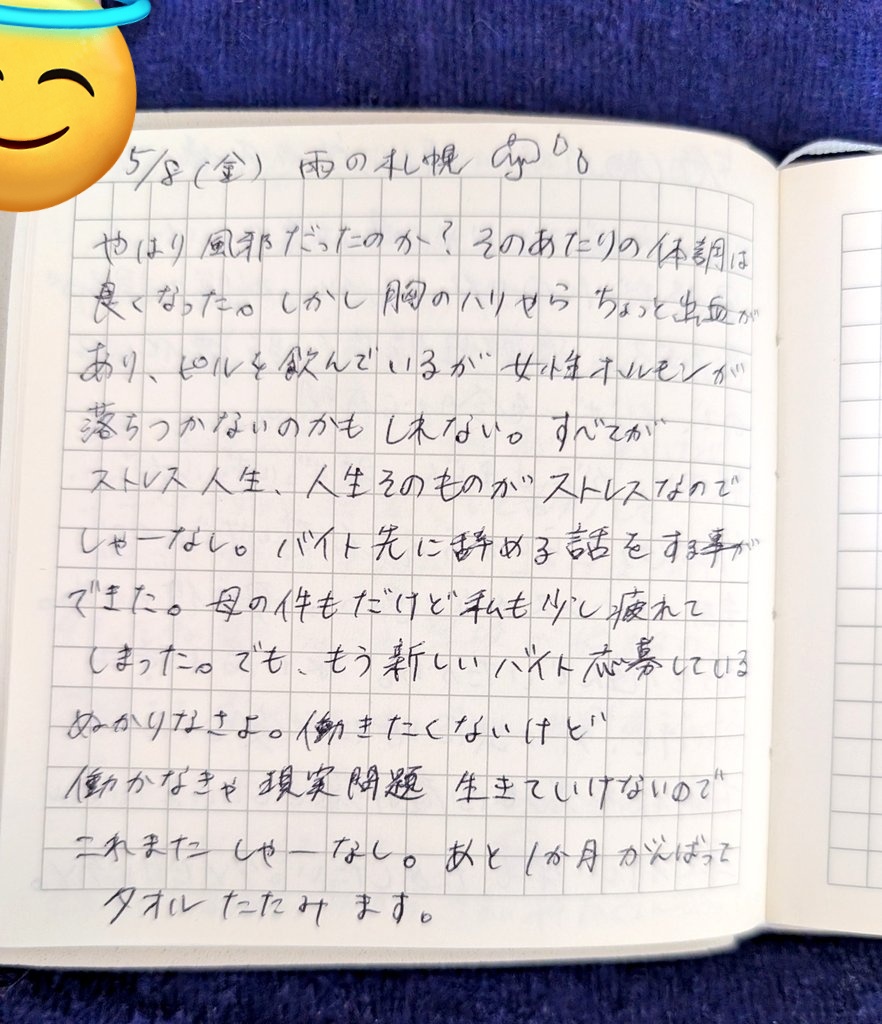 5/8(金) 雨の札幌
やはり風邪だったのか?そのあたりの体調は
良くなった。しかし胸のハリやら ちょっと出血が
あり、ピルを飲んでいるが 女性ホルモンが
落ちつかないのかもしれない。すべてが
ストレス人生、人生そのものがストレスなので
しゃーなし。バイト先に辞める話をする事が
できた。母の件もだけど私も少し疲れて
しまった。でも、もう新しいバイト応募している
ぬかりなさよ。働きたくないけど
働かなきゃ現実問題 生きていけないので
これまたしゃーなし。あと1か月がんばって
タオルたたみます。